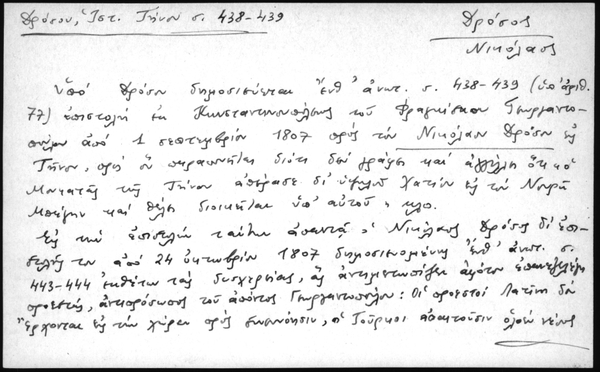 Δρόσου, Ἱστ. Τήνου σ. 438-439
Δρόσος
Νικόλαος
Ὑπό Δρόσου δημοσιεύεται ἔνθ' ἀνωτ. σ. 438-439 (ὑπ' ἀριθ.
77) ἐπιστολή ἐκ Κωνσταντινουπόλεως τοῦ Φραγκίσκου Γεωργαντο-
πούλου ἀπό 1 σεπτεμβρίου 1807 πρός τόν Νικόλαον Δρόσον εἰς
Τῆνον, πρός ὅν παραπονεῖται διότι δέν γράφει καί ἀγγέλλει ὅτι ὁ
τῆς Τήνου ἀπέρασε δι' ὑψηλοῦ Χατίου εἰς τόν
Μπέην καί θέλει διοικεῖται ὑπ' αὐτοῦ κλπ.
Εἰς τήν ἐπιστολήν ταύτην ἀπαντᾷ ὁ Νικόλαος Δρόσος δι' ἐπι-
στολῆς του ἀπό 24 ὀκτωβρίου 1807 δημοσιευομένης ἔνθ' ἀνωτ. σ.
443-444 ἐκθέτων τάς δυσχερείας, ἅς ἀντιμετωπίζει
προεστώς, τοῦ ἀπόντος Γεωργαντοπούλου: Οἱ προεστοί Λατῖνοι δέν
"ἔρχονται εἰς τήν χώραν πρός συμφώνησιν, οἱ Τοῦρκοι ἀπαιτοῦσιν